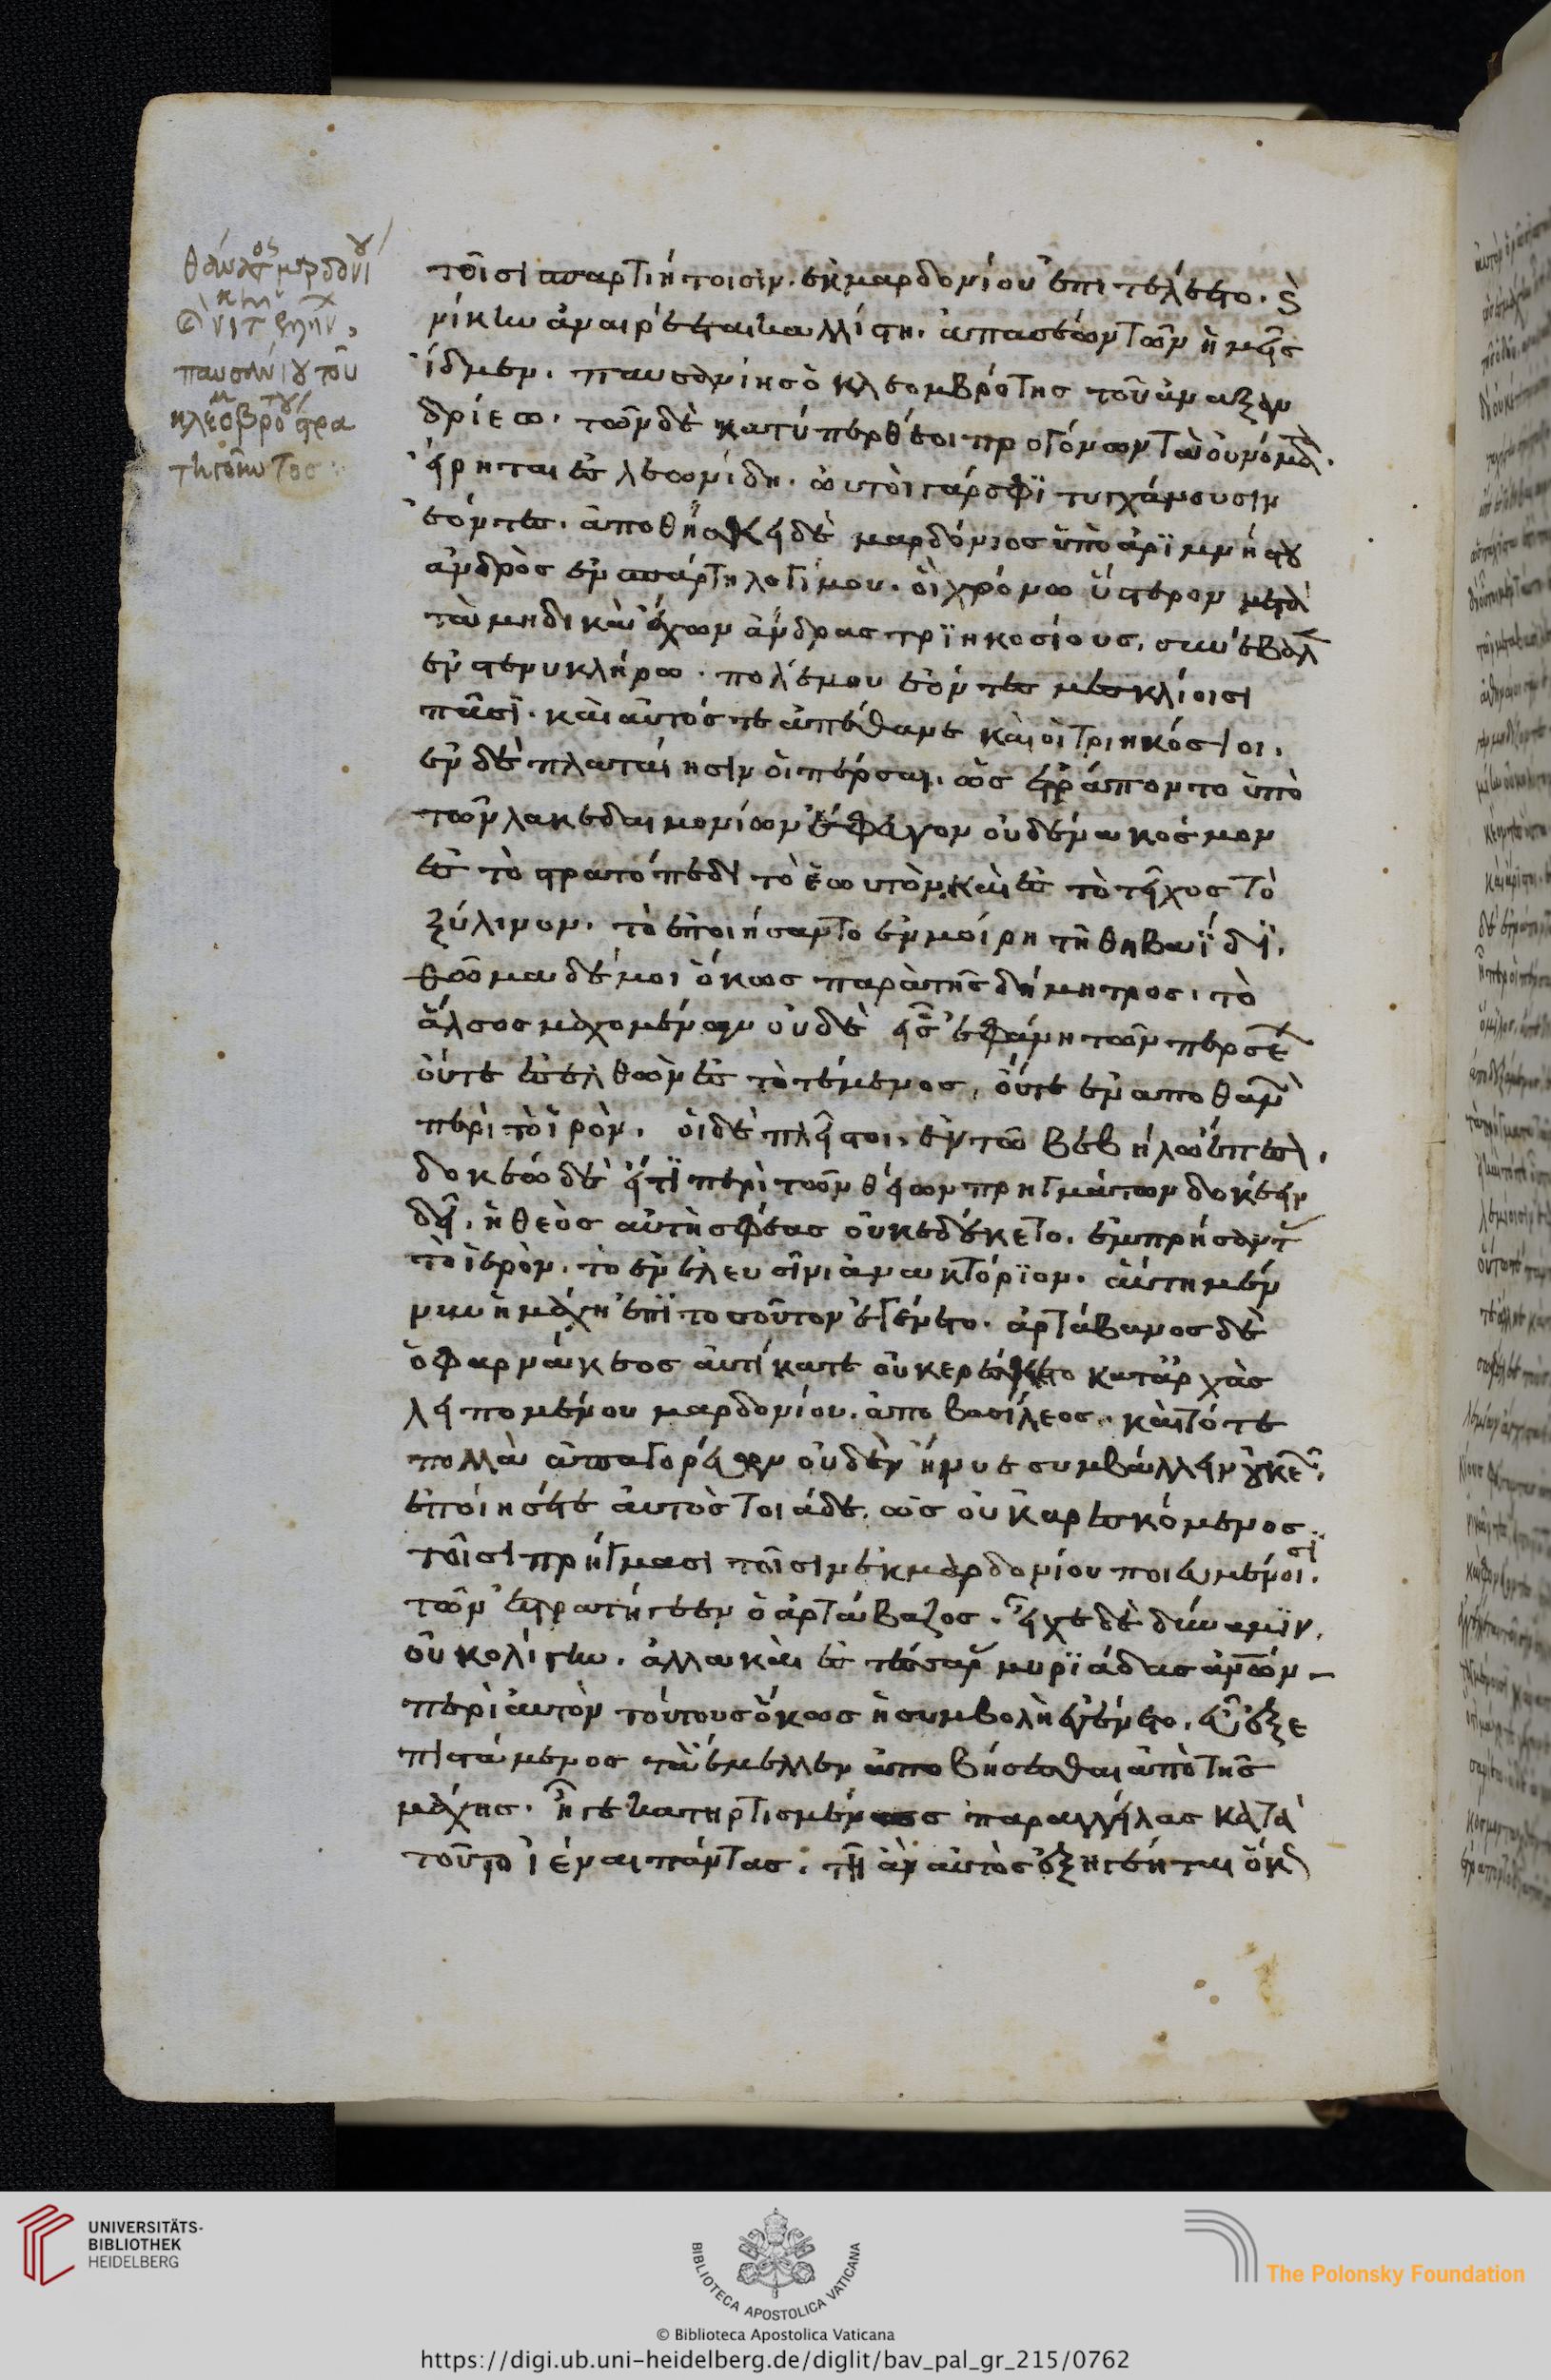 θάνατος μαρδονίου
παυσανίου τοῦ
κλεομβρότου στρα
τηγοῦντος
τοῖσι σπαρτιήτοισιν. ἐκ μαρδονίου ἐπιτελέετο. καὶ
νίκην ἀναιρέεται καλλίστη. ἁπασέων τῶν ἡμεῖς
ἴδμεν. παυσανίης ὁ κλεομβρότης τοῦ ἀναξαν
δρίεω. τῶν δὲ κατύπερθέ οἱ προγόνων τὰ ὀυνόματα.
ἔιρηται ἐς λεωνίδη. ὡυτοὶ γάρ σφϊ τυγχάνουσιν
ἐόντες. ἀποθνήσκει δὲ μαρδόνιος ὑπὸ ἀρϊμνήστου
ἀνδρὸς ἐν σπάρτη λογίμου. ὃι χρόνω ὕστερον μετὰ
τὰ μηδικὰ ἔχων ἄνδρας τρϊηκοσίους, συνέβαλε
ἐν στενυκλήρω. πολέμου ἐόντος μεσκλίοισι
πᾶσι. καὶ αὐτός τε ἀπέθανε καὶ οἱ τριηκόσιοι.
ἐν δὲ πλαταιῆσιν ὁι πέρσαι. ὡς ἐτράποντο ὑπὸ
τῶν λακεδαιμονίων ἔφευγον οὐδένα κόσμον
ἐς τὸ στρατόπεδον τὸ ἑωυτῶν. καὶ ἐς τὸ τεῖχος τὸ
ξύλινον. τὸ ἐποιήσαντο ἐν μοίρη τῆ θηβαΐδϊ.
θῶμα δέ μοι ὅκως παρὰ τῆς δήμητρος. τὸ
ἄλσος μαχομένων οὐδὲ εἷς ἐφάνη τῶν περσέων
ὄυτε ἐσελθὼν ἐς τὸ τέμενος, ὄυτε ἐναποθανὼν
περὶ τὸ ἱρὸν. ὁι δὲ πλεῖστοι. ἐν τῶ βεβήλω ἔπεσον.
δοκέω δὲ ἔιτϊ περὶ τῶν θείων πρηγμάτων δοκέειν
δεῖ. ἡ θεὸς αὐτὴ σφέας οὐκ ἐδέκετο. ἐμπρήσαντας
τὸ ἱερὸν. τὸ ἐν ἐλευσῖνι ἀνακτόρϊον. ἅυτη μέν
νυν ἡ μάχη ἐπῒ τοσοῦτον ἐγένετο. ἀρτάβανος δὲ
ὁ φαρνάκεος ἀυτίκα τε οὐκ ἠρέσκετο κατ' ἀρχὰς
λειπομένου μαρδονίου. ἀπο βασιλέος. καὶ τότε
πολλὰ ἀπαγορεύων οὐδὲν ἤνυε συμβάλλειν οὐκ ἐῶν.
ἐποίησέ τε ἀυτὸς τοιάδε. ὡς οὐκ ἀρεσκόμενος
τοῖσι πρήγμασι τοῖσιν ἐκ μαρδονίου ποιευμένοισι.
τῶν ἐστρατήγεεν ὁ ἀρτάβαζος. εἶχε δὲ δύναμϊν.
οὐκ ὀλίγην. ἀλλα καὶ ἐς τέσσαρας μυρϊάδας ἀνθρώπων
περὶ ἑωυτὸν τούτους ὅκως ἡ συμβολὴ ἐγένετο. εὖ ἐξε
πιστάμενος τὰ ἔμελλεν ἀποβήσεσθαι ἀπὸ τῆς
μάχης. ἦγε κατηρτισμένως παραγγείλας κατὰ
τοῦτο ἰέναι πάντας. τῆ ἂν αὐτὸς ἐξηγέηται ὅκως
UNIVERSITÄTS-
BIBLIOTHEK
HEIDELBERG
BIBLIOTECA APOSTOLICA VATICANA
The Polonsky Foundation
© Biblioteca Apostolica Vaticana
https://digi.ub.uni-heidelberg.de/diglit/bav_pal_gr_215/0762